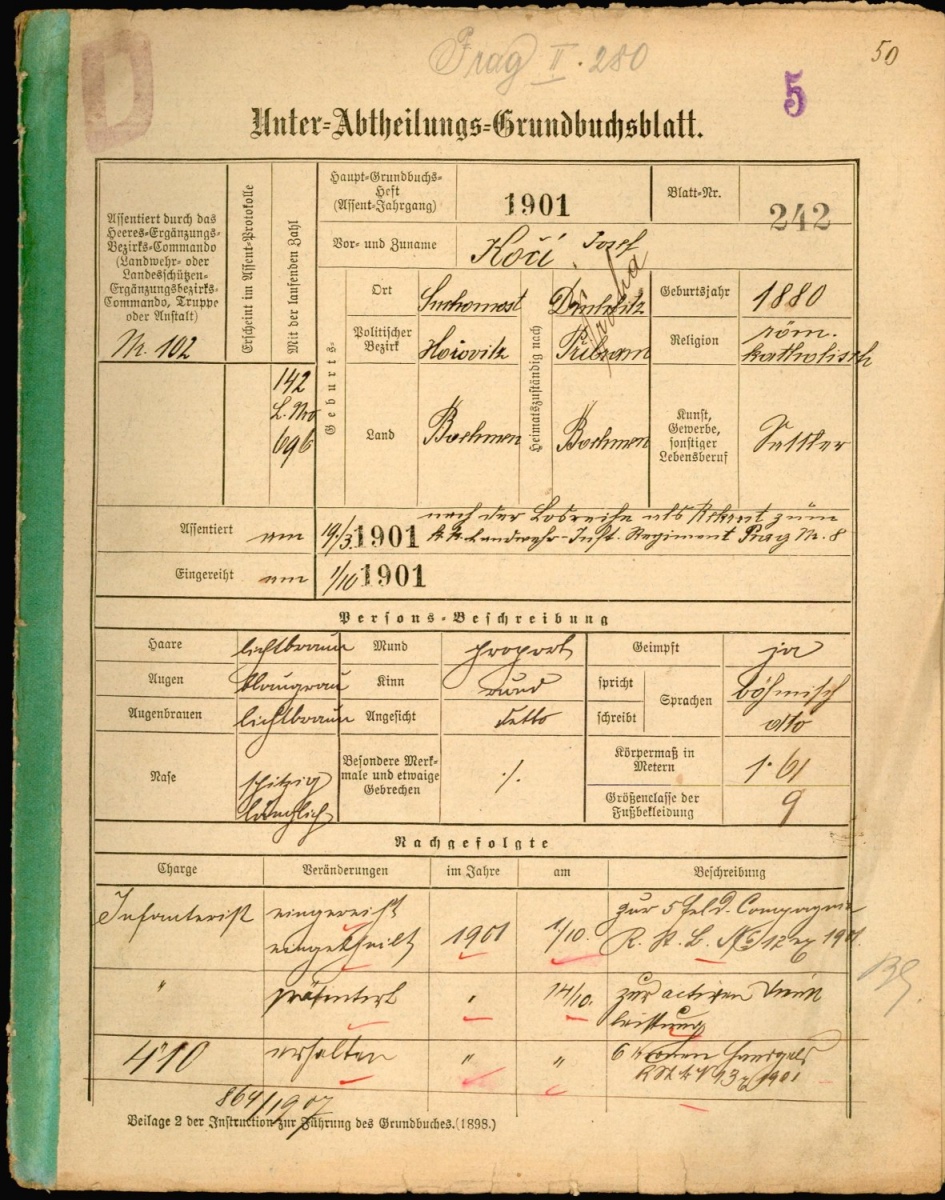 Prag II. 280
50
5
Unter-Abtheilungs-Grundbuchsblatt.
Assentiert durch das
Heeres-Ergänzungs-
Bezirks-Commando
(Landwehr- oder
Landesschützen-
Ergänzungsbezirks-
Commando, Truppe
oder Anstalt)
Nr. 102
Erscheint im Assent-Protokolle
Mit der laufenden Zahl
142
L. Nro
696
Haupt-Grundbuchs-
Heft
(Assent-Jahrgang)
1901
Blatt-Nr.
242
Vor- und Zuname
Kočí Josef
Geburts-
Ort
Suchomast
Politischer
Bezirk
Horovitz
Land
Boehmen
Heimatszuständig nach
Přibram
Boehmen
Geburtsjahr
1880
Religion
röm.
katholisch
Kunst,
Gewerbe,
sonstiger
Lebensberuf
Sattler
Assentiert
am
19/3. 1901
nach der Losreihe als Rekrut zum
k. k. Landwehr-Inft. Regiment Prag Nr. 8
Eingereiht
am
1/10 1901
Persons-Beschreibung
Haare
lichtbraun
Mund
proport
Geimpft
ja
Augen
blaugrau
Kinn
rund
spricht
schreibt
Sprachen
böhmisch
dto
Augenbrauen
lichtbraun
Angesicht
detto
Nase
spitzig
länglich
Besondere Merk-
male und etwaige
Gebrechen
./.
Körpermaß in
Metern
1·61
Größenclasse der
Fußbekleidung
9
Nachgefolgte
Charge
Veränderungen
im Jahre
am
Beschreibung
Infanterist
eingereiht
eingetheilt
1901
1/10.
zur 5 Feld. Compagnie
R. St. B. No 12 ex 1901
"
präsentiert
"
14/10.
zur activen Dienst
leistung
4·10
erhalten
"
"
6 Kronen Handgeld
1901
864/1907
Beilage 2 der Instruction zur Führung des Grundbuches. (1898.)